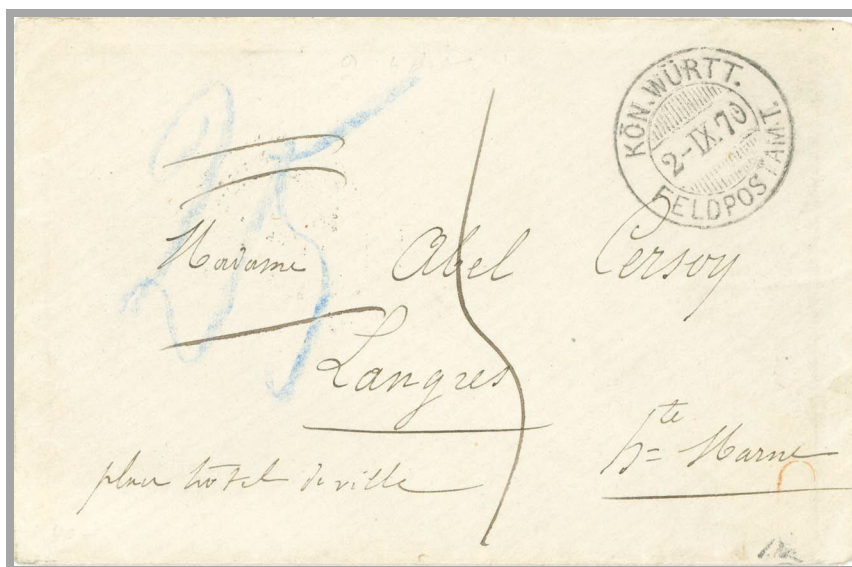 KÖN. WÜRTT.
2-IX.70
FELDPOSTAMT.
25
Madame Abel Cersoy
Langres
hte Marne
place hôtel de ville